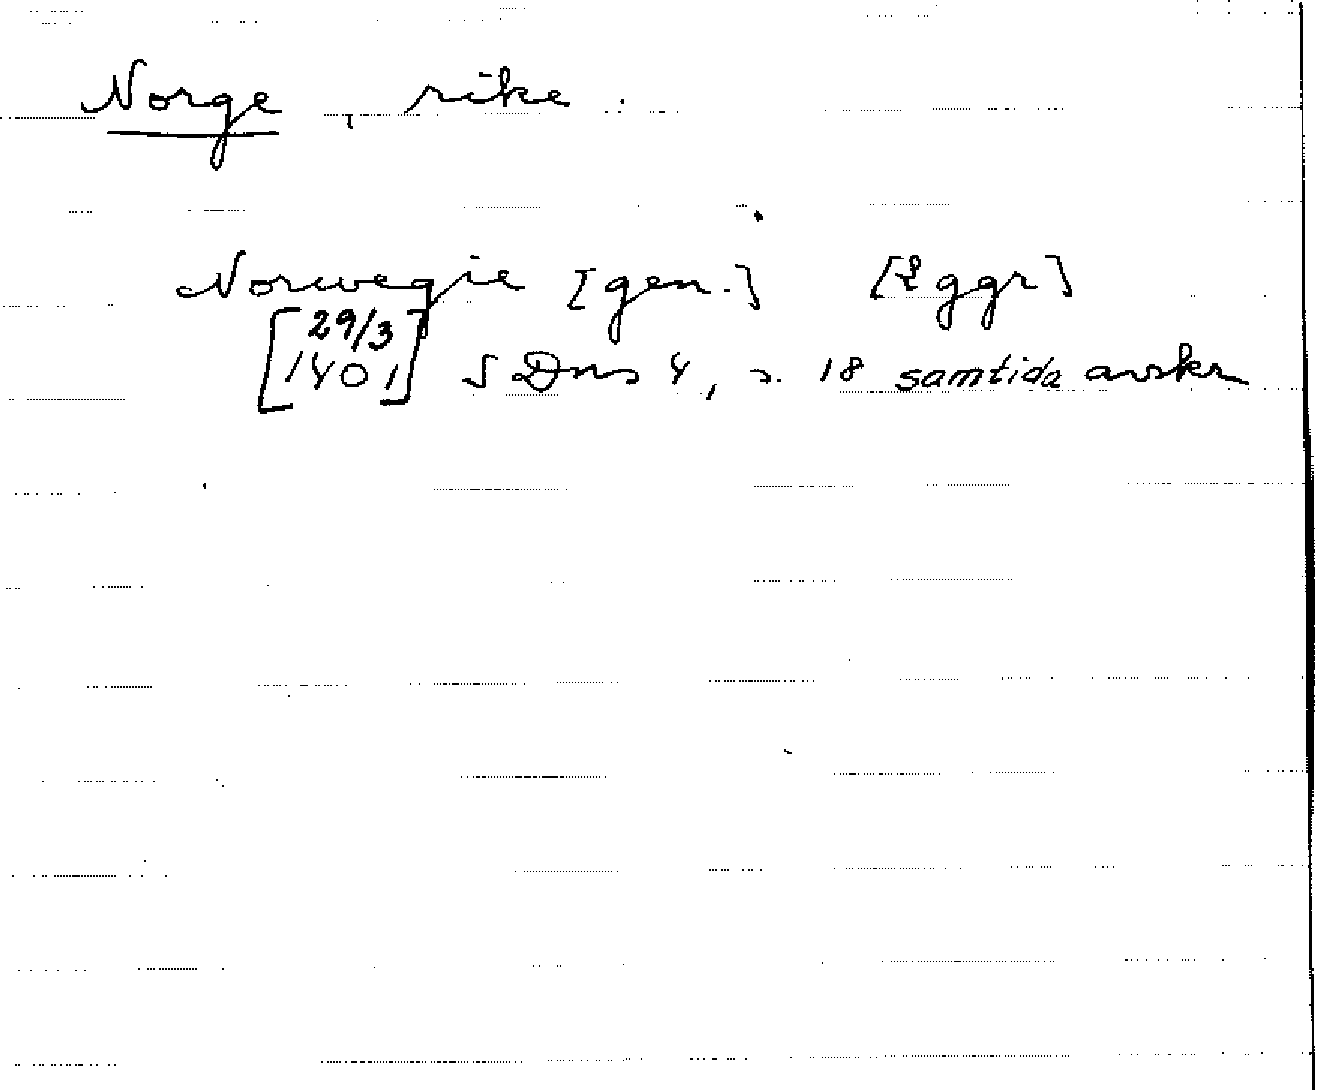 Norge, rike.
Norwegie [gen.] [2 ggr]
[29/3
1401] SDns 4, s. 18 samtida avskr